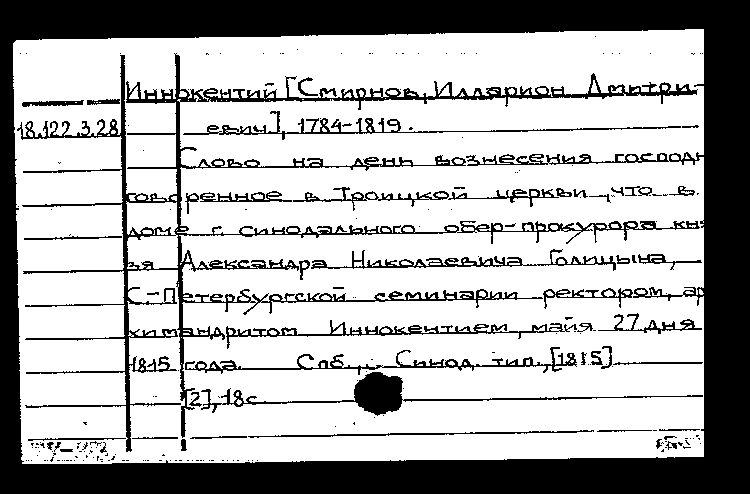 Иннокентий [Смирнов, Илларион Дмитри-
18.122.3.28 евич], 1784-1819.
Слово на день вознесения господн
говоренное в Троицкой церкви, что в
доме г. синодального обер-прокурора кня
зя Александра Николаевича Голицына,
С.-Петербургской семинарии ректором, ар
химандритом Иннокентием, майя 27 дня
1815 года. Спб., Синод. тип., [1815]
[2], 18 с